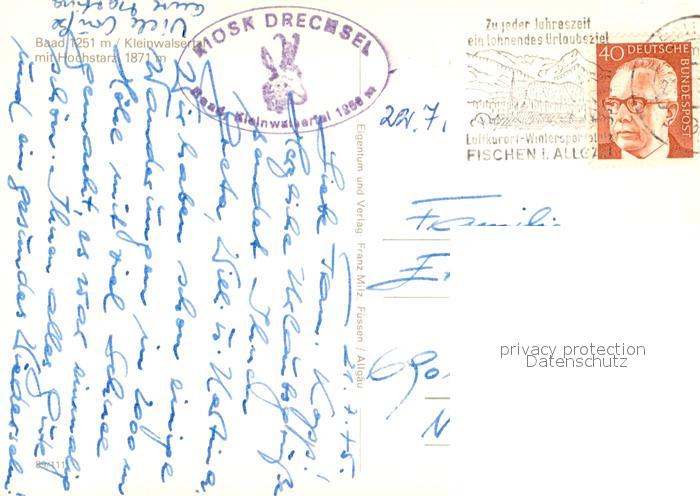 Baad 1251 m / Kleinwalsertal
mit Hochstarzl 1871 m
KIOSK DRECHSEL
Baad, Kleinwalsertal 1250 m
Zu jeder Jahreszeit
ein lohnendes Urlaubsziel
Luftkurort-Wintersportplatz
FISCHEN i. ALLG.
40 DEUTSCHE BUNDESPOST
Eigentum und Verlag Franz Milz, Füssen / Allgäu
21.7.75.
Liebe Fam. Kopp!
Herzliche Urlaubsgrüße
sendet Ihnen
Willi u.
Wir haben schon einige
Wanderungen in 2000 m
Höhe mit viel Schnee
gemacht, es war einmalig
schön. Ihnen alles Gute
und ein gesundes Wiedersehn!
Viele Grüße
Familie
privacy protection
Datenschutz